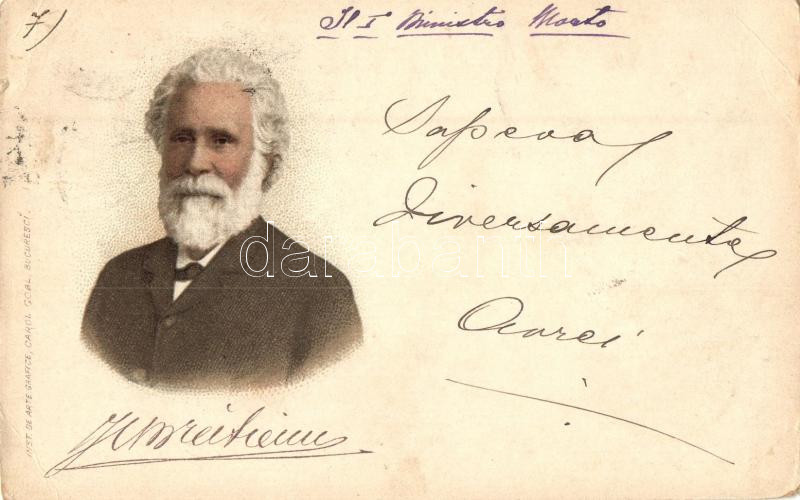 7)
Il I Ministro Morto
Sapeva
diversamente
avrei
darabanth
INST. DE ARTE GRAFICE, CAROL GÖBL BUCURESCI.